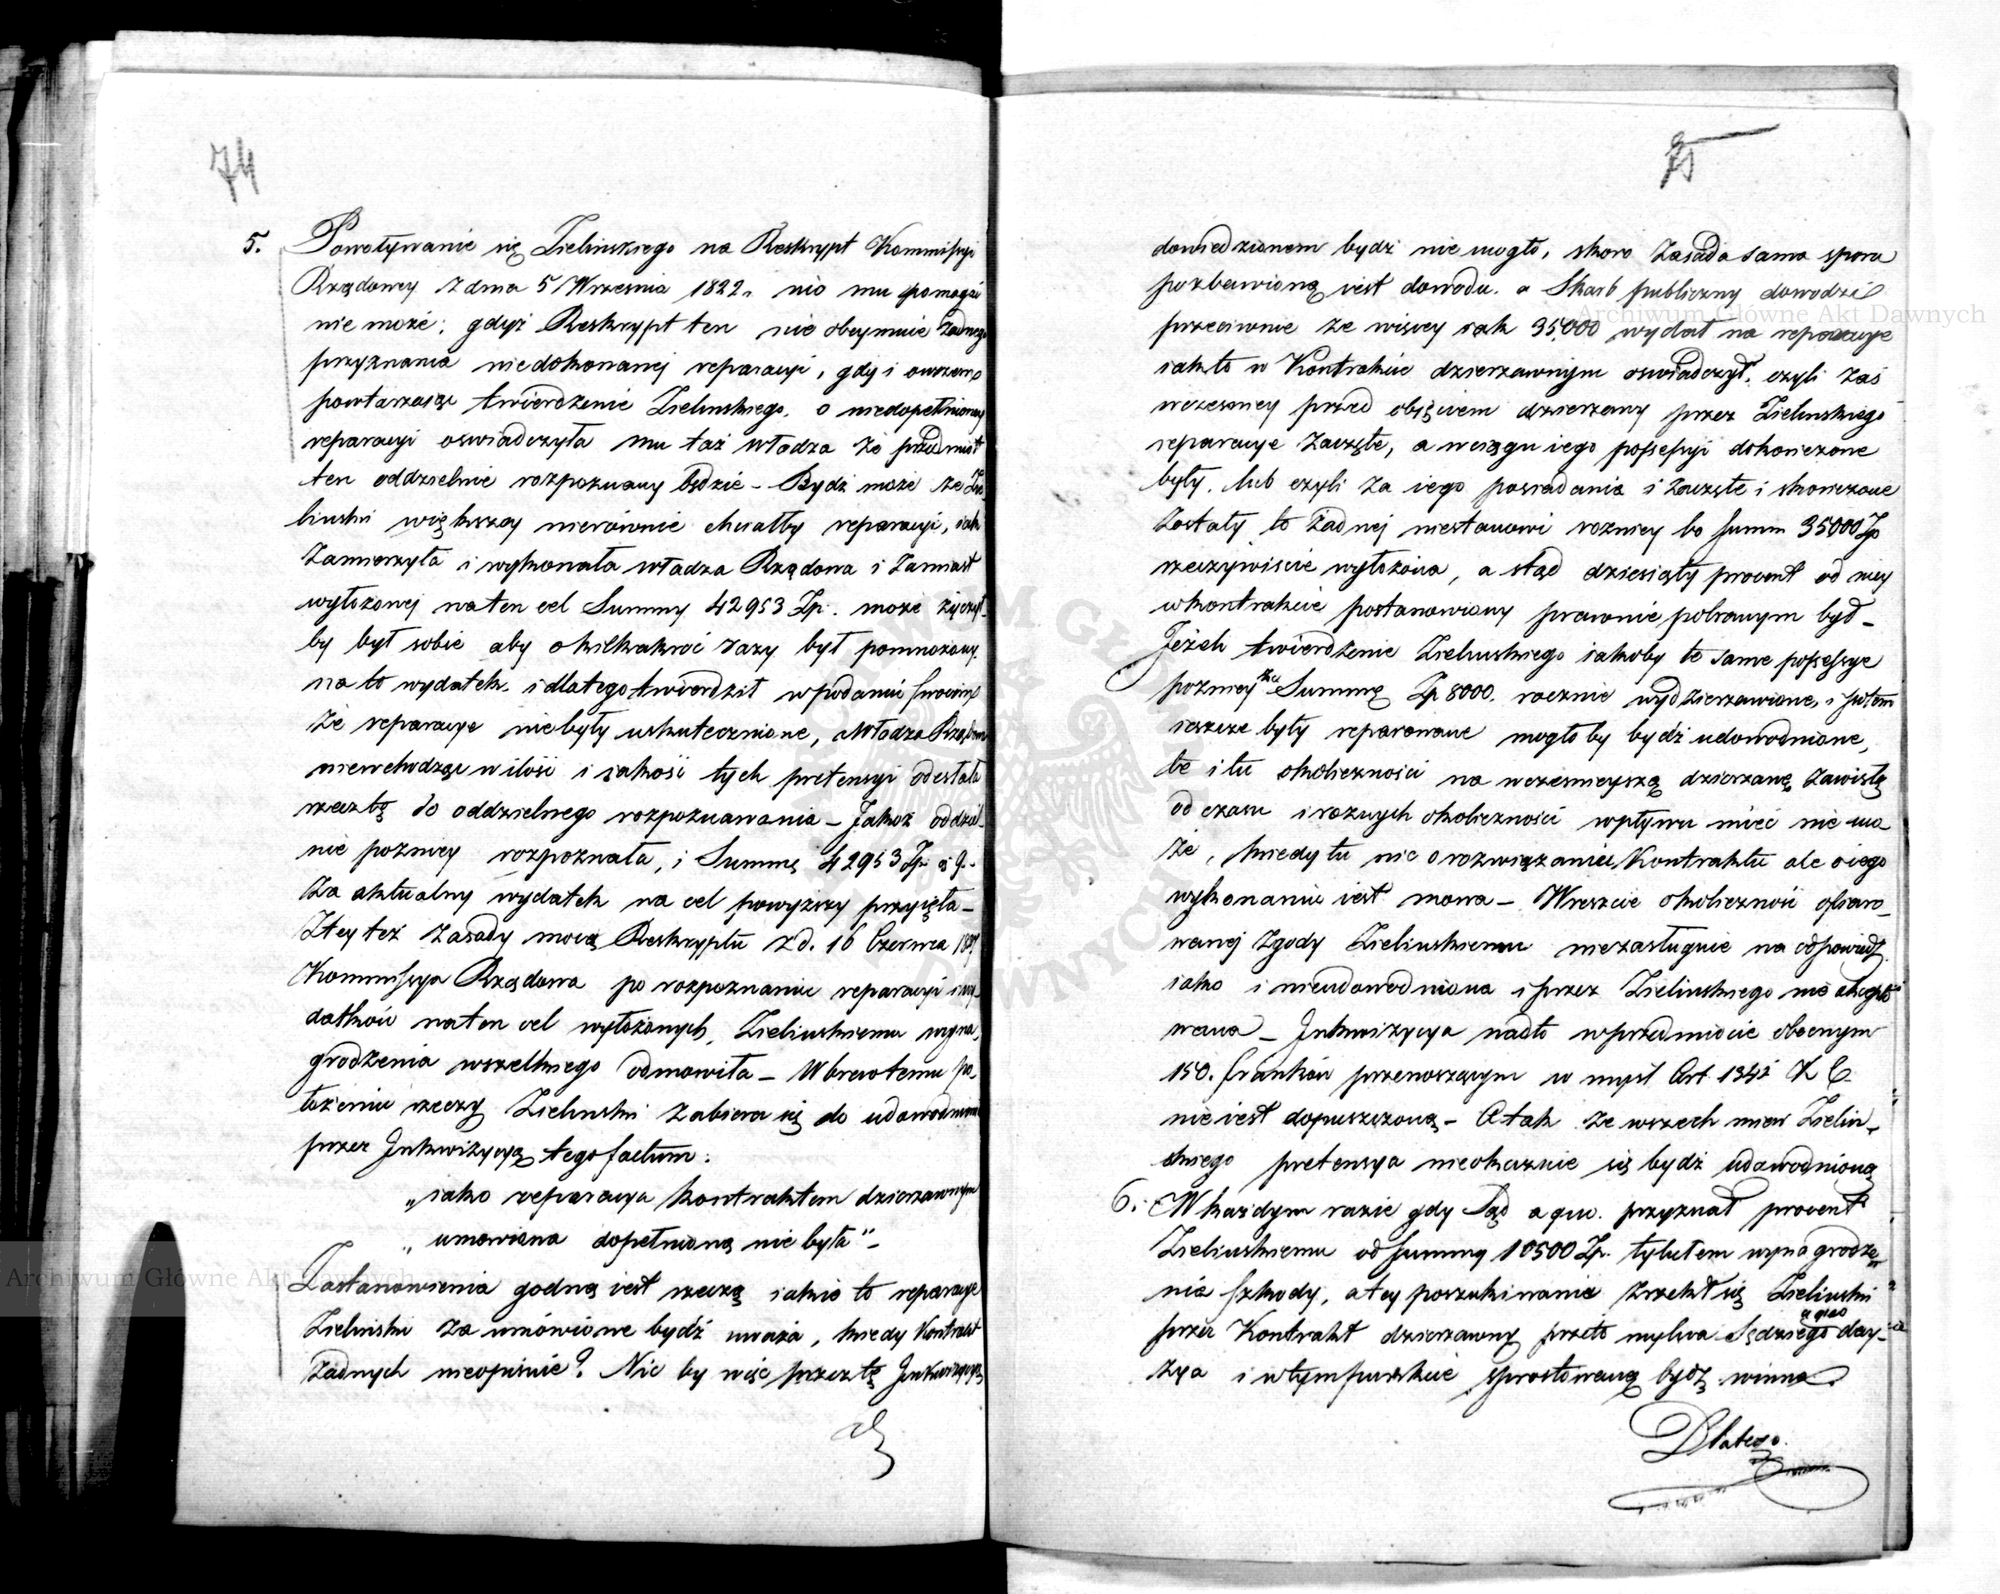 74
5. Powoływanie się Zielinskiego na Reskrypt Kommissyi
Rządowey z dnia 5 Września 1822. nic mu pomagać
nie może; gdyż Reskrypt ten nie obeymuie żadnego
przyznania niedokonanej reparacyi, gdy i owszem
powtarzaiąc twierdzenie Zielinskiego, o niedopełnioney
reparacyi oswiadczyła mu taż władza że przedmiot
ten oddzielnie rozpoznany będzie – Bydź może że Zie
linski większey nierównie chciałby reparacyi, iak
zamierzyła i wykonała władza Rządowa i zamiast
wyłożonej na ten cel Summy 42953 Zp. może życzył
by był sobie aby o kilkakroć razy był pomnożony
na to wydatek, i dlatego twierdził w podaniu swoim
że reparacye nie były uskutecznione, Władza Rządowa
niewchodząc w ilość i iakość tych pretensyi odesłała
rzecz tę do oddzielnego rozpoznawania – Jakoż oddziel
nie pozniey rozpoznała, i Summę 42953 Zp. g.
za aktualny wydatek na cel powyższy przyięła –
Z tey też zasady mocą Reskryptu z d. 16 Czerwca
Kommissya Rządowa po rozpoznaniu reparacyi i wy
datków na ten cel wyłożonych, Zielinskiemu wyna
grodzenia wszelkiego odmowiła – Wbrew temu po
łożeniu rzeczy Zielinski zabiera się do udowodnienia
przez Inkwizycyą tego factum:
„iako reparacya kontraktem dzierzawnym
„umowiona dopełnioną nie była" –
Zastanowienia godną iest rzeczą iakie to reparacye
Zielinski za umówione bydź uważa, kiedy Kontrakt
żadnych nieopiewa? Nic by więc przez tę Inkwizycyą
75
dowiedzionem bydź nie mogło, skoro zasada sama sporu
pozbawioną iest dowodu. a Skarb publiczny dowodzi
przeciwnie że więcey iak 35.000 wydał na reparacye
iak to w Kontrakcie dzierzawnym oswiadczył, czyli zaś
wczesniey przed obięciem dzierzawy przez Zielinskiego
reparacye zaczęte, a w ciągu iego possessyi dokończone
były, lub czyli za iego posiadania i zaczęte i skończone
zostały to żadnej niestanowi roznicy bo summ 35000 Zp
rzeczywiscie wyłożona, a stąd dziesiąty procent od niey
w kontrakcie postanowiony prawnie pobranym był –
Jeżeli twierdzenie Zielinskiego iakoby te same possessye
pozniey za Summę Zp 8000. rocznie wydzierzawione, i potem
ieszcze były reparowane mogło by bydź udowodnione,
te i tu okoliczności na wczesnieyszą dzierzawę zawisłą
od czasu i roznych okoliczności wpływu mieć nie mo
że, kiedy tu nie o rozwiązaniu Kontraktu ale o iego
wykonaniu iest mowa – Wreszcie okoliczność ofiaro
wanej zgody Zielinskiemu niezasługuie na odpowiedź,
iako i nieudowodniona i przez Zielinskiego nie akcepto
wana – Inkwizycya nadto w przedmiocie obecnym
150. franków przenoszącym w mysl Art. 1341 K C
nie iest dopuszczoną – A tak ze wszech miar Zielin
skiego pretensya nieokazuie się bydź udowodnioną
6. W każdym razie gdy Sąd a quo. przyznał procent
Zielinskiemu od summy 10500 Zp. tytułem wynagrodze
nia szkody, a tey poszukiwania zrzekł się Zielinski
przez Kontrakt dzierzawny przeto mylna Sędziego a quo decy
zya i w tym punkcie sprostowaną bydź winna.
Dlatego.